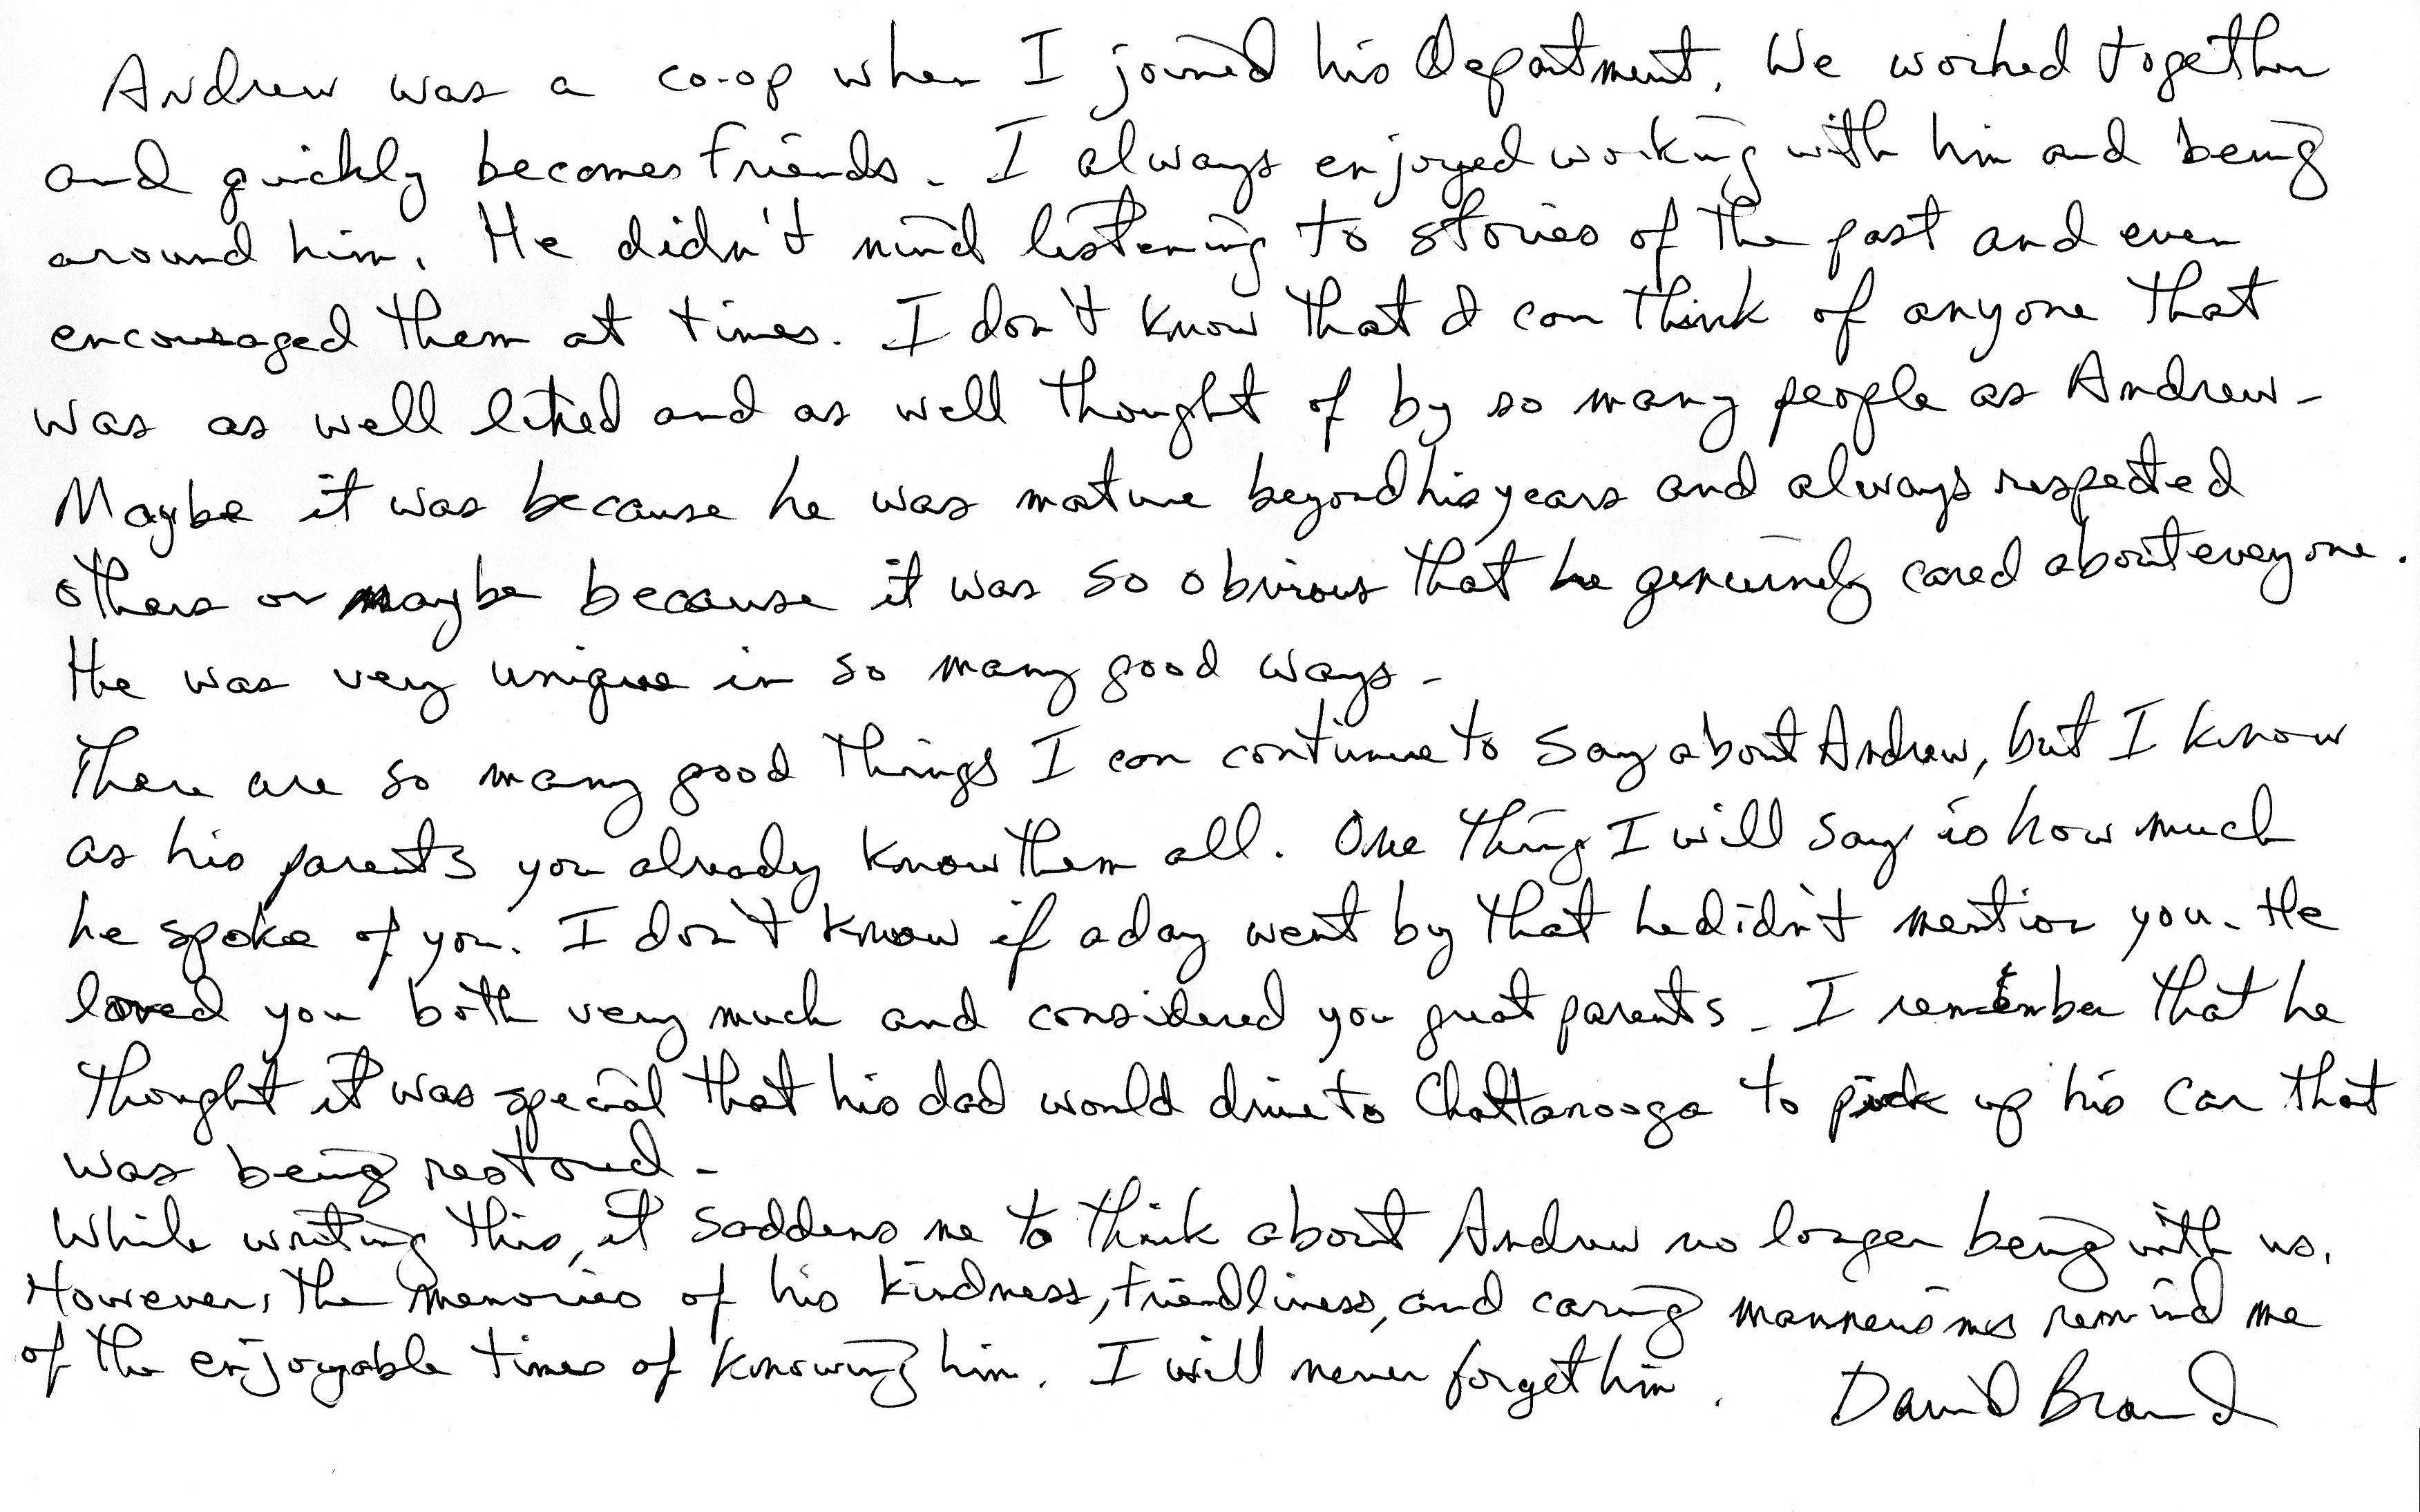 Andrew was a co-op when I joined his department. We worked together
and quickly becomes friends. I always enjoyed working with him and being
around him. He didn't mind listening to stories of the past and even
encouraged them at times. I don't know that I can think of anyone that
was as well liked and as well thought of by so many people as Andrew.
Maybe it was because he was mature beyond his years and always respected
others or maybe because it was so obvious that he genuinely cared about everyone.
He was very unique in so many good ways.
There are so many good things I can continue to say about Andrew, but I know
as his parents you already know them all. One thing I will say is how much
he spoke of you. I don't know if a day went by that he didn't mention you. He
loved you both very much and considered you great parents. I remember that he
thought it was special that his dad would drive to Chattanooga to pick up his car that
was being restored.
While writing this, it saddens me to think about Andrew no longer being with us.
However, the memories of his kindness, friendliness, and caring mannerisms remind me
of the enjoyable times of knowing him. I will never forget him. David Brand